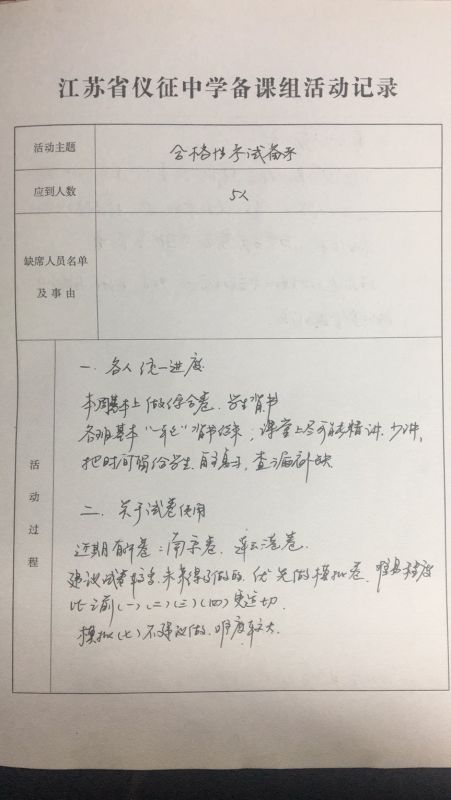 江苏省仪征中学备课组活动记录
活动主题
合格性考试备考
应到人数
5人
缺席人员名单
及事由
活动过程
一、各人统一进度
本周基本上做综合卷、学生背书
各班基本“一轮”背书结束,课堂上尽可能精讲、少讲,
把时间留给学生自主复习,查漏补缺
二、关于试卷使用
近期有卷:南京卷、连云港卷.
建议试卷较多,未来得及做的,优先做模拟卷,难易程度
比之前(一)(二)(三)(四)更适切.
模拟(七)不建议做,难度较大.